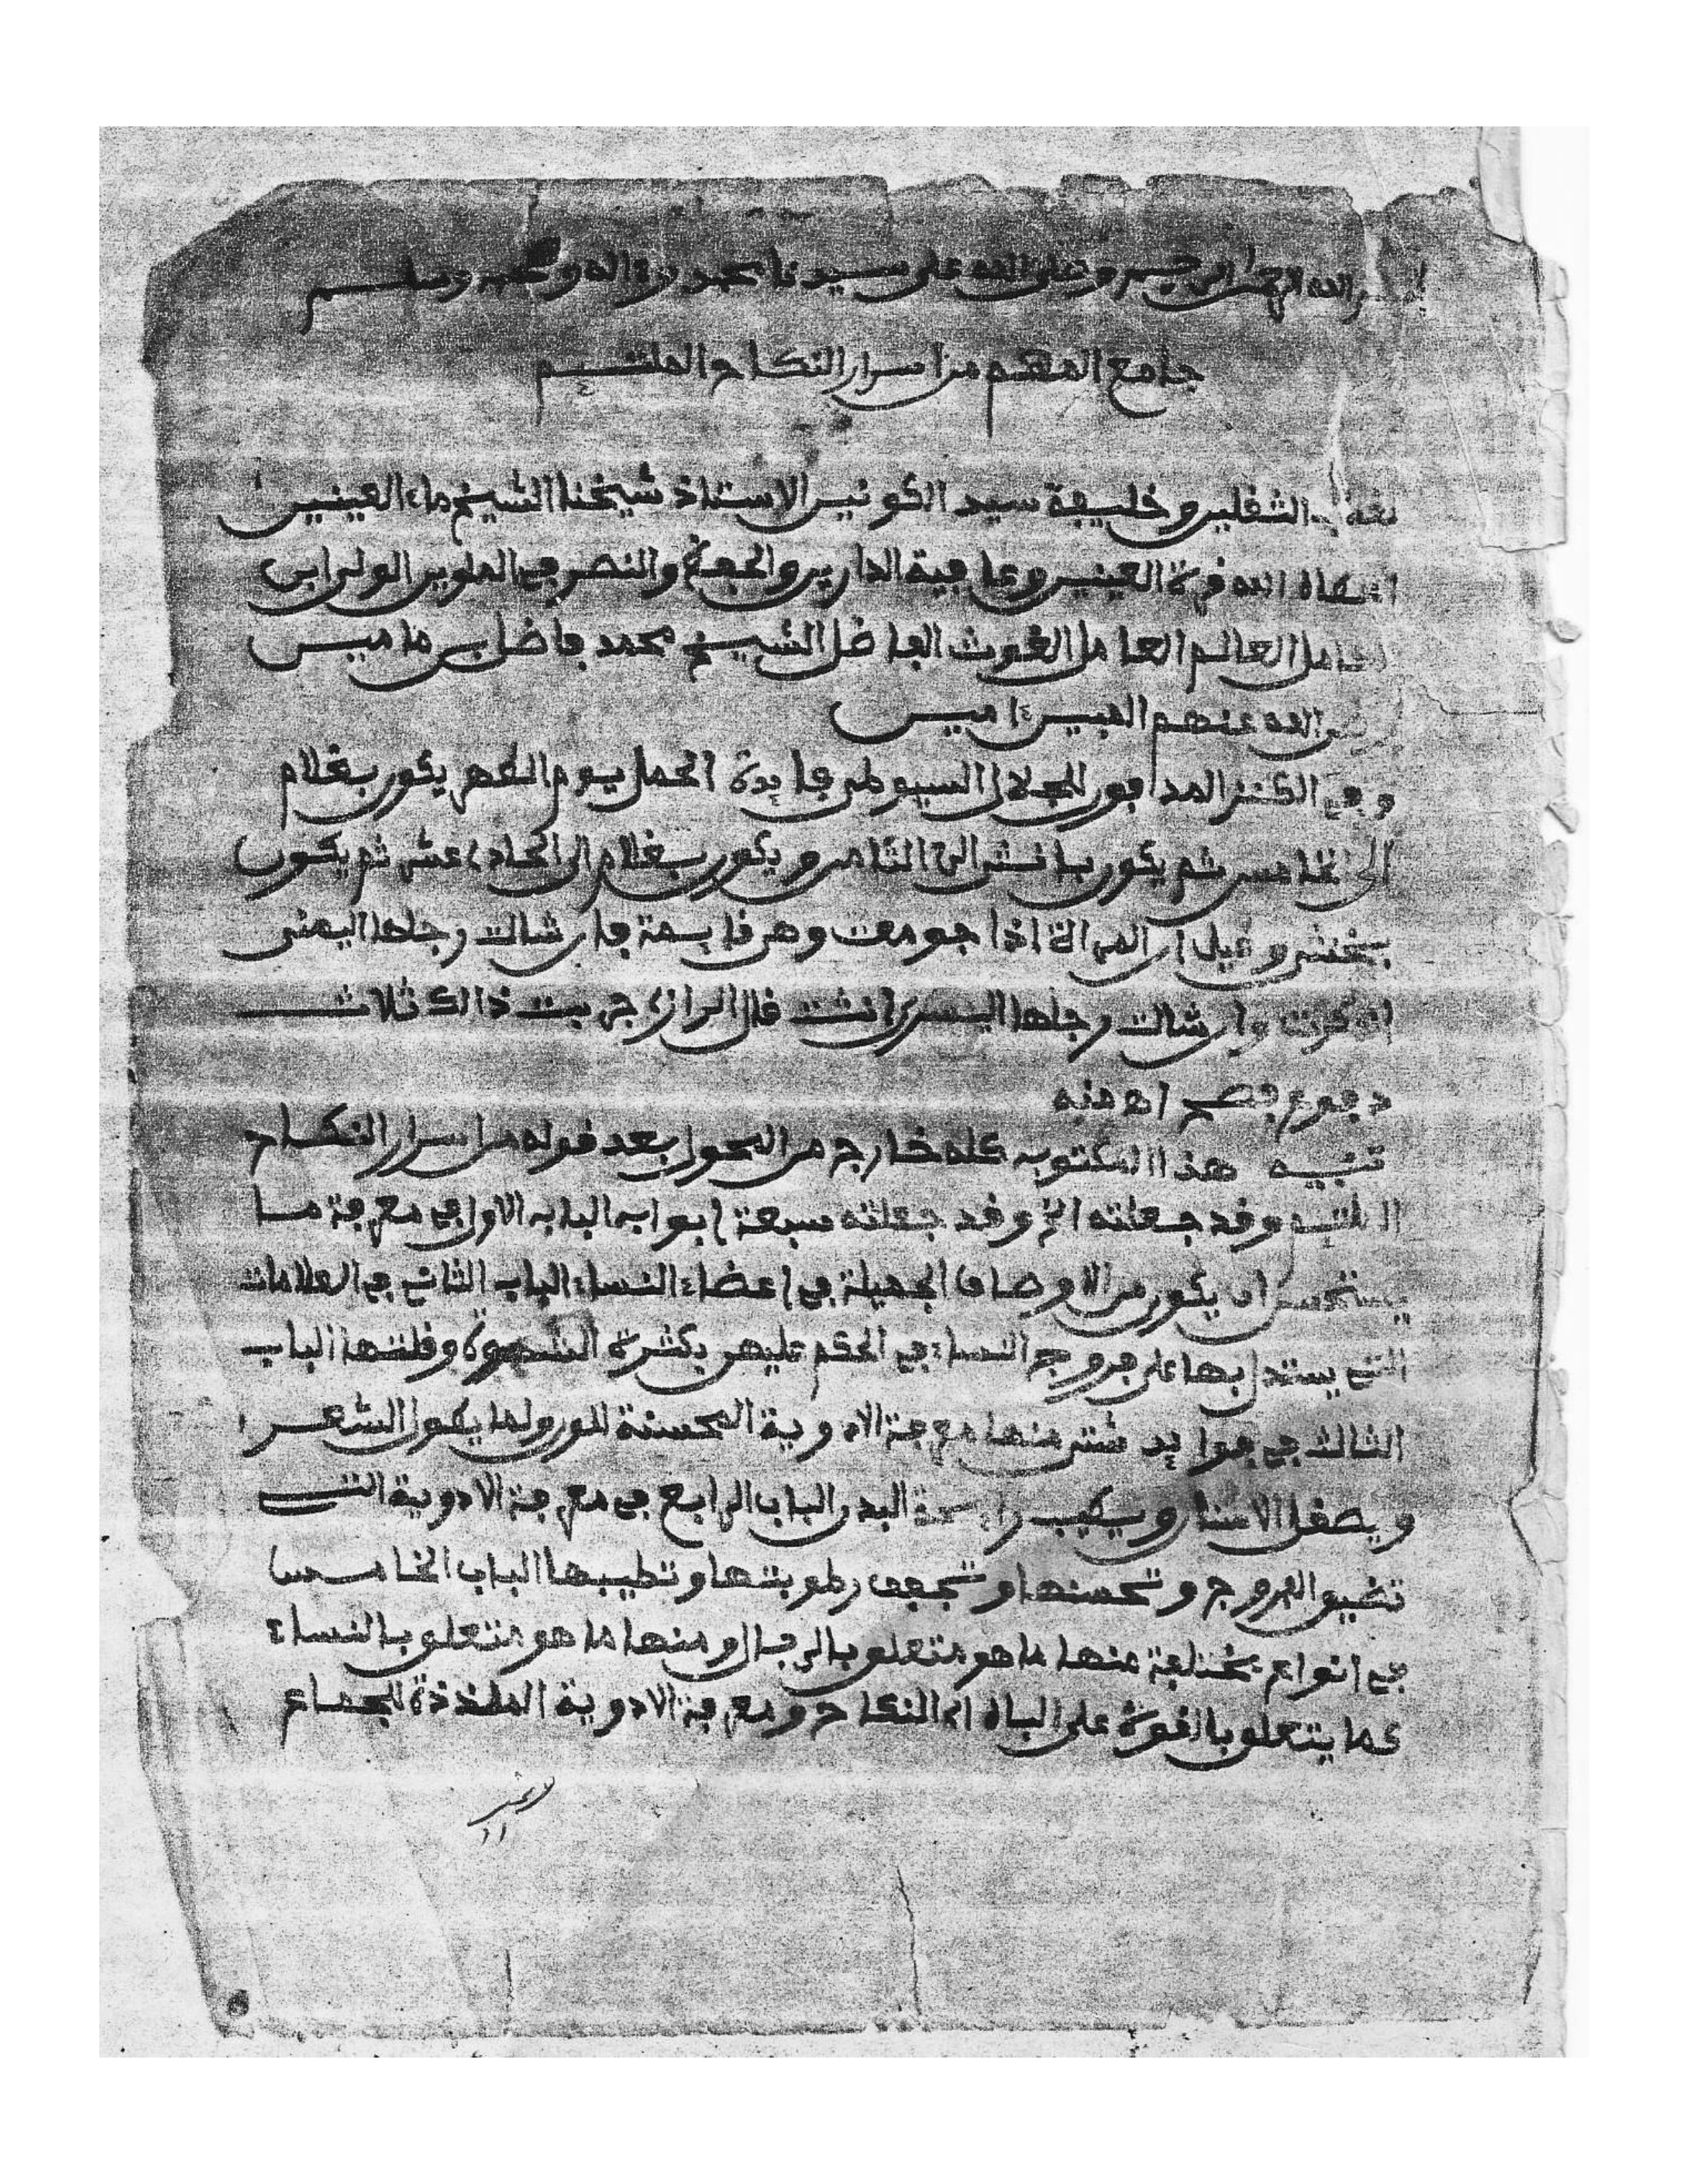 الله الرحمن الرحيم وصلى الله على سيدنا محمد وءاله وصحبه وسلم
جامع المهم من أسرار النكاح الملتئم
الثقلين وخليفة سيد الكونين الاستاذ شيخنا الشيخ ماء العينين
الله قرة العينين وعافية الدارين والحفظ والنصر في الملوين الولي ابن
العالم العامل الغوث الفاضل الشيخ محمد فاضل بن مامين
الله عنهم المبين ءامين
وفي الكنز المدفون للجلال السيوطي فايدة الحمل يوم الطهر يكون بغلام
الى الخامس ثم يكون بانثى الى الثامن ويكون بغلام الى الحادي عشر ثم يكون
بخنثى وقيل ان المرأة اذا جومعت وهي قايمة فان شالت رجلها اليمنى
اذكرت وان شالت رجلها اليسرى انثت قال الرازي جربت ذالك ثلاث
دفوع فصح اه منه
تنبيه هذا المكتوب كله خارج من المحول بعد قوله من اسرار النكاح
الملتئم وقد جعلته الخ وقد جعلته سبعة ابواب الباب الاول في معرفة ما
يستحسن ان يكون من الاوصاف الجميلة في اعضاء النساء الباب الثاني في العلامات
التي يستدل بها على فروج النساء في الحكم عليهن بكثرة الشهوة وقلتها الباب
الثالث في فوايد شتى منها معرفة الادوية المحسنة للون ولما يطول الشعر
ويصقل الاسنان ويطيب رايحة البدن الباب الرابع في معرفة الادوية التي
تضيق الفروج وتحسنها وتجفف رطوبتها وتطيبها الباب الخامس
في انواع مختلفة منها ما هو متعلق بالرجال ومنها ما هو متعلق بالنساء
مما يتعلق بالقوة على الباه اي النكاح ومعرفة الادوية الملذذة للجماع